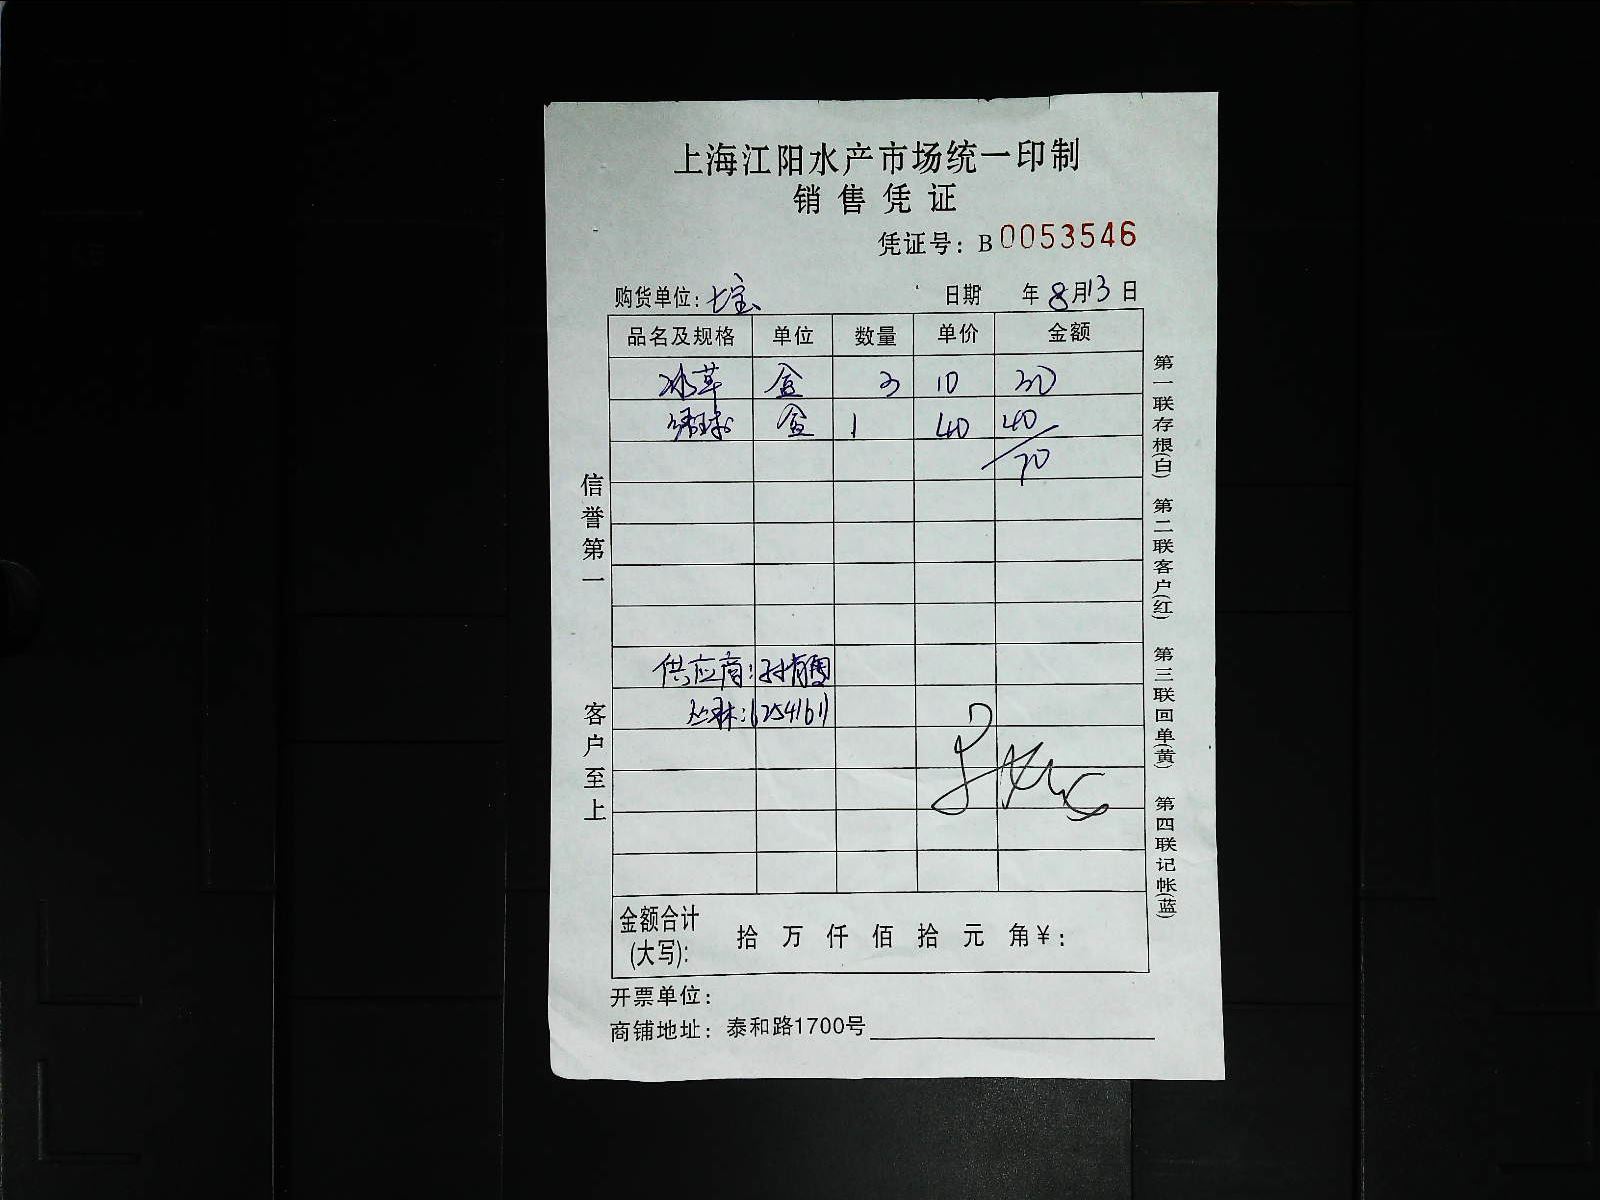 上海江阳水产市场统一印制
销售凭证
凭证号：B0053546
购货单位：七宝 日期 年8月13日
品名及规格 单位 数量 单价 金额
冰草 盒 3 10 30
绣球 盒 1 40 40
70
供应商：孙育霞
丛琳：1254161
信誉第一
客户至上
第一联存根(白) 第二联客户(红) 第三联回单(黄) 第四联记帐(蓝)
金额合计(大写)： 拾 万 仟 佰 拾 元 角￥：
开票单位：
商铺地址：泰和路1700号